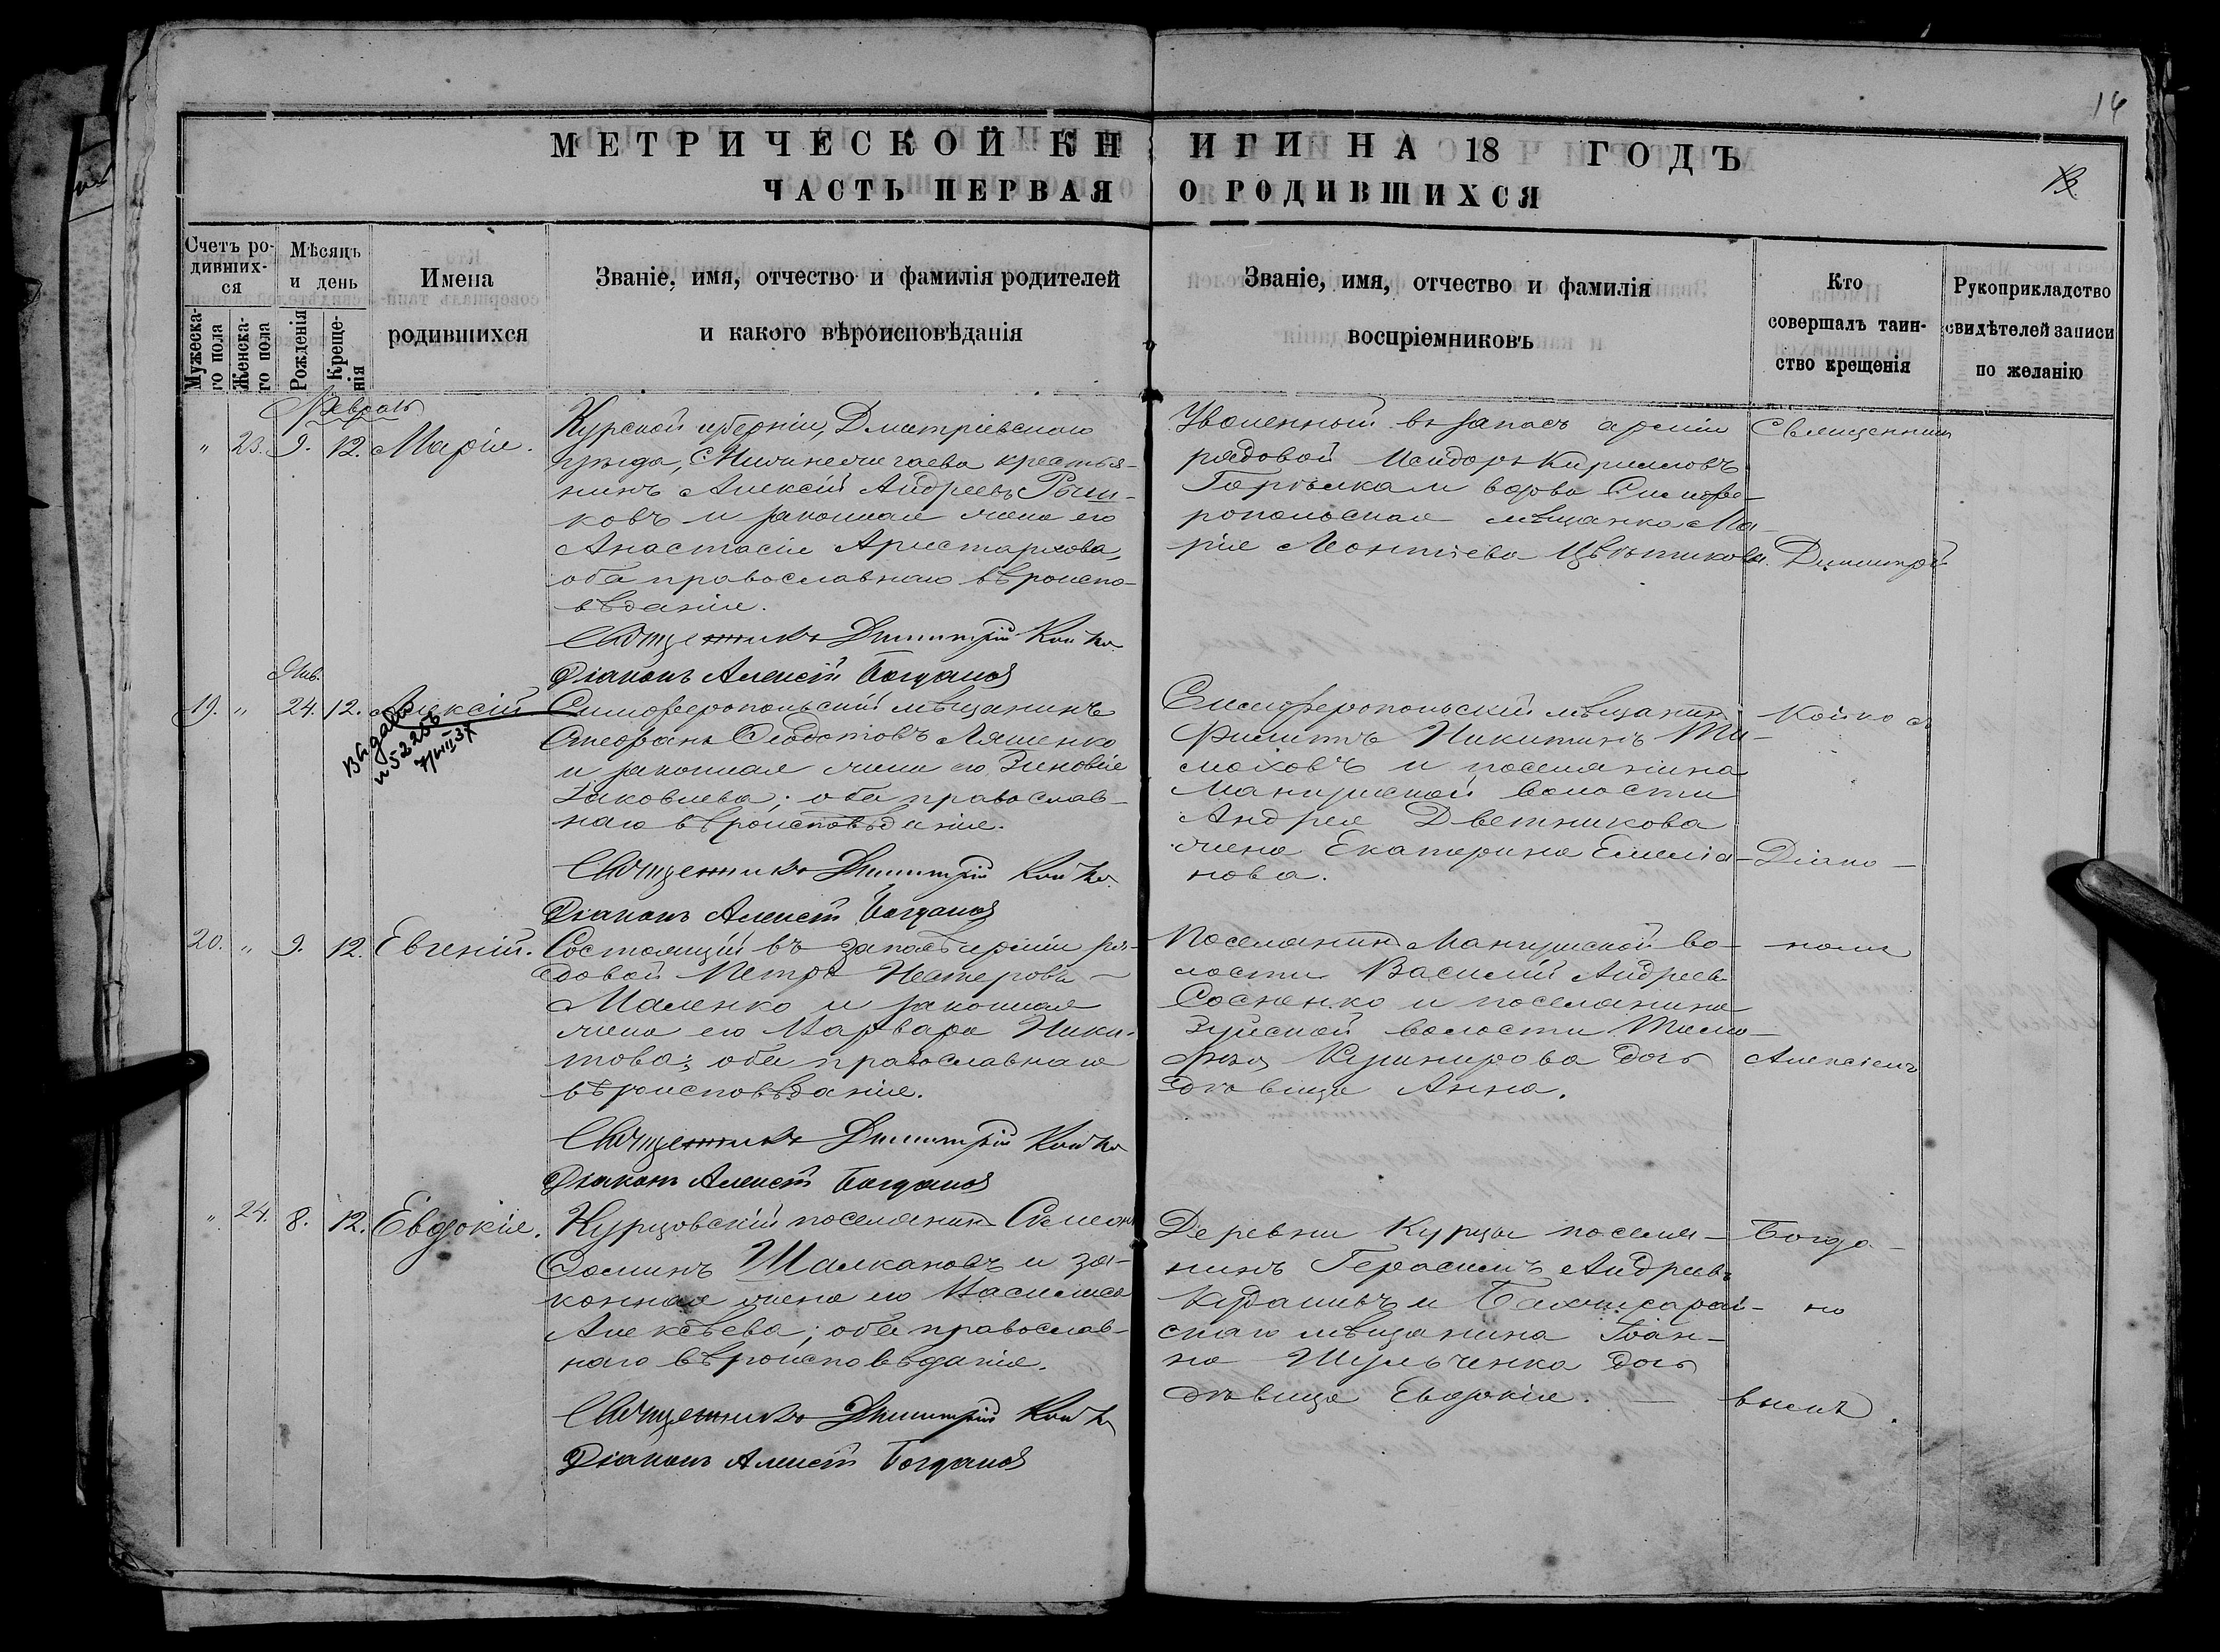 14
МЕТРИЧЕСКОЙ КНИГИ НА 18 ГОДЪ
ЧАСТЬ ПЕРВАЯ О РОДИВШИХСЯ
Счетъ родившихся
Мужескаго пола
Женскаго пола
Мѣсяцъ и день
Рожденія
Крещенія
Имена
родившихся
Званіе, имя, отчество и фамилія родителей
и какого вѣроисповѣданія
Званіе, имя, отчество и фамилія
воспріемниковъ
Кто
совершалъ таин-
ство крещенія
Рукоприкладство
свидѣтелей записи
по желанію
Февраль
" 23. 9. 12. Марія.
Курской губерніи, Дмитріевскаго
уѣзда, крестья-
нинъ Алексій Андреевъ
ковъ и законная жена его
Анастасія Аристархова,
оба православнаго вѣроиспо-
вѣданія.
Священникъ Димитрій Койко
Діаконъ Алексій Богдановъ
Уволенный въ запасъ арміи
рядовой Исидоръ Кирилловъ
и вдова Симфе-
ропольская мѣщанка Ма-
рія Леонтіева Цвѣтикова.
Янв.
19. " 24. 12. Алексій
Выдана
n 52256
7/III 37
Симферопольскій мѣщанинъ
Стефанъ Ѳеодотовъ Ляшенко
и законная жена его Зиновія
Іаковлева; оба православ-
наго вѣроисповѣданія.
Священникъ Димитрій Койко
Діаконъ Алексій Богдановъ
Симферопольскій мѣщанинъ
Филиппъ Никитинъ Ти-
моховъ и поселянина
Мангушской волости
Андрея Цветникова
жена Екатерина Емелiа-
нова.
20. " 9. 12. Евгеній.
Состоящій въ запасѣ арміи ря-
довой Петръ Нестеровъ
Маленко и законная
жена его Варвара Ники-
това; оба православнаго
вѣроисповѣданія.
Священникъ Димитрій Койко
Діаконъ Алексій Богдановъ
Поселянинъ Мангушской во-
лости Василій Андреевъ
Сосненко и поселянина
Зуйской волости Тимо-
фея Кушнирова дочь
дѣвица Анна.
" 24. 8. 12. Евдокія.
Курцовскій поселянинъ Симеонъ
Ѳоминъ Шалкановъ и за-
конная жена его Василиса
Алексѣева; оба православ-
наго вѣроисповѣданія.
Священникъ Димитрій Койко
Діаконъ Алексій Богдановъ
Деревни Курцы поселя-
нинъ Герасимъ Андреевъ
и Бахчисарай-
скаго мѣщанина Іоан-
на Шульченка дочь
дѣвица Евдокія.
Священникъ
Димитрій
Койко съ
Діако-
номъ
Алексіемъ
Богда-
но
вымъ.